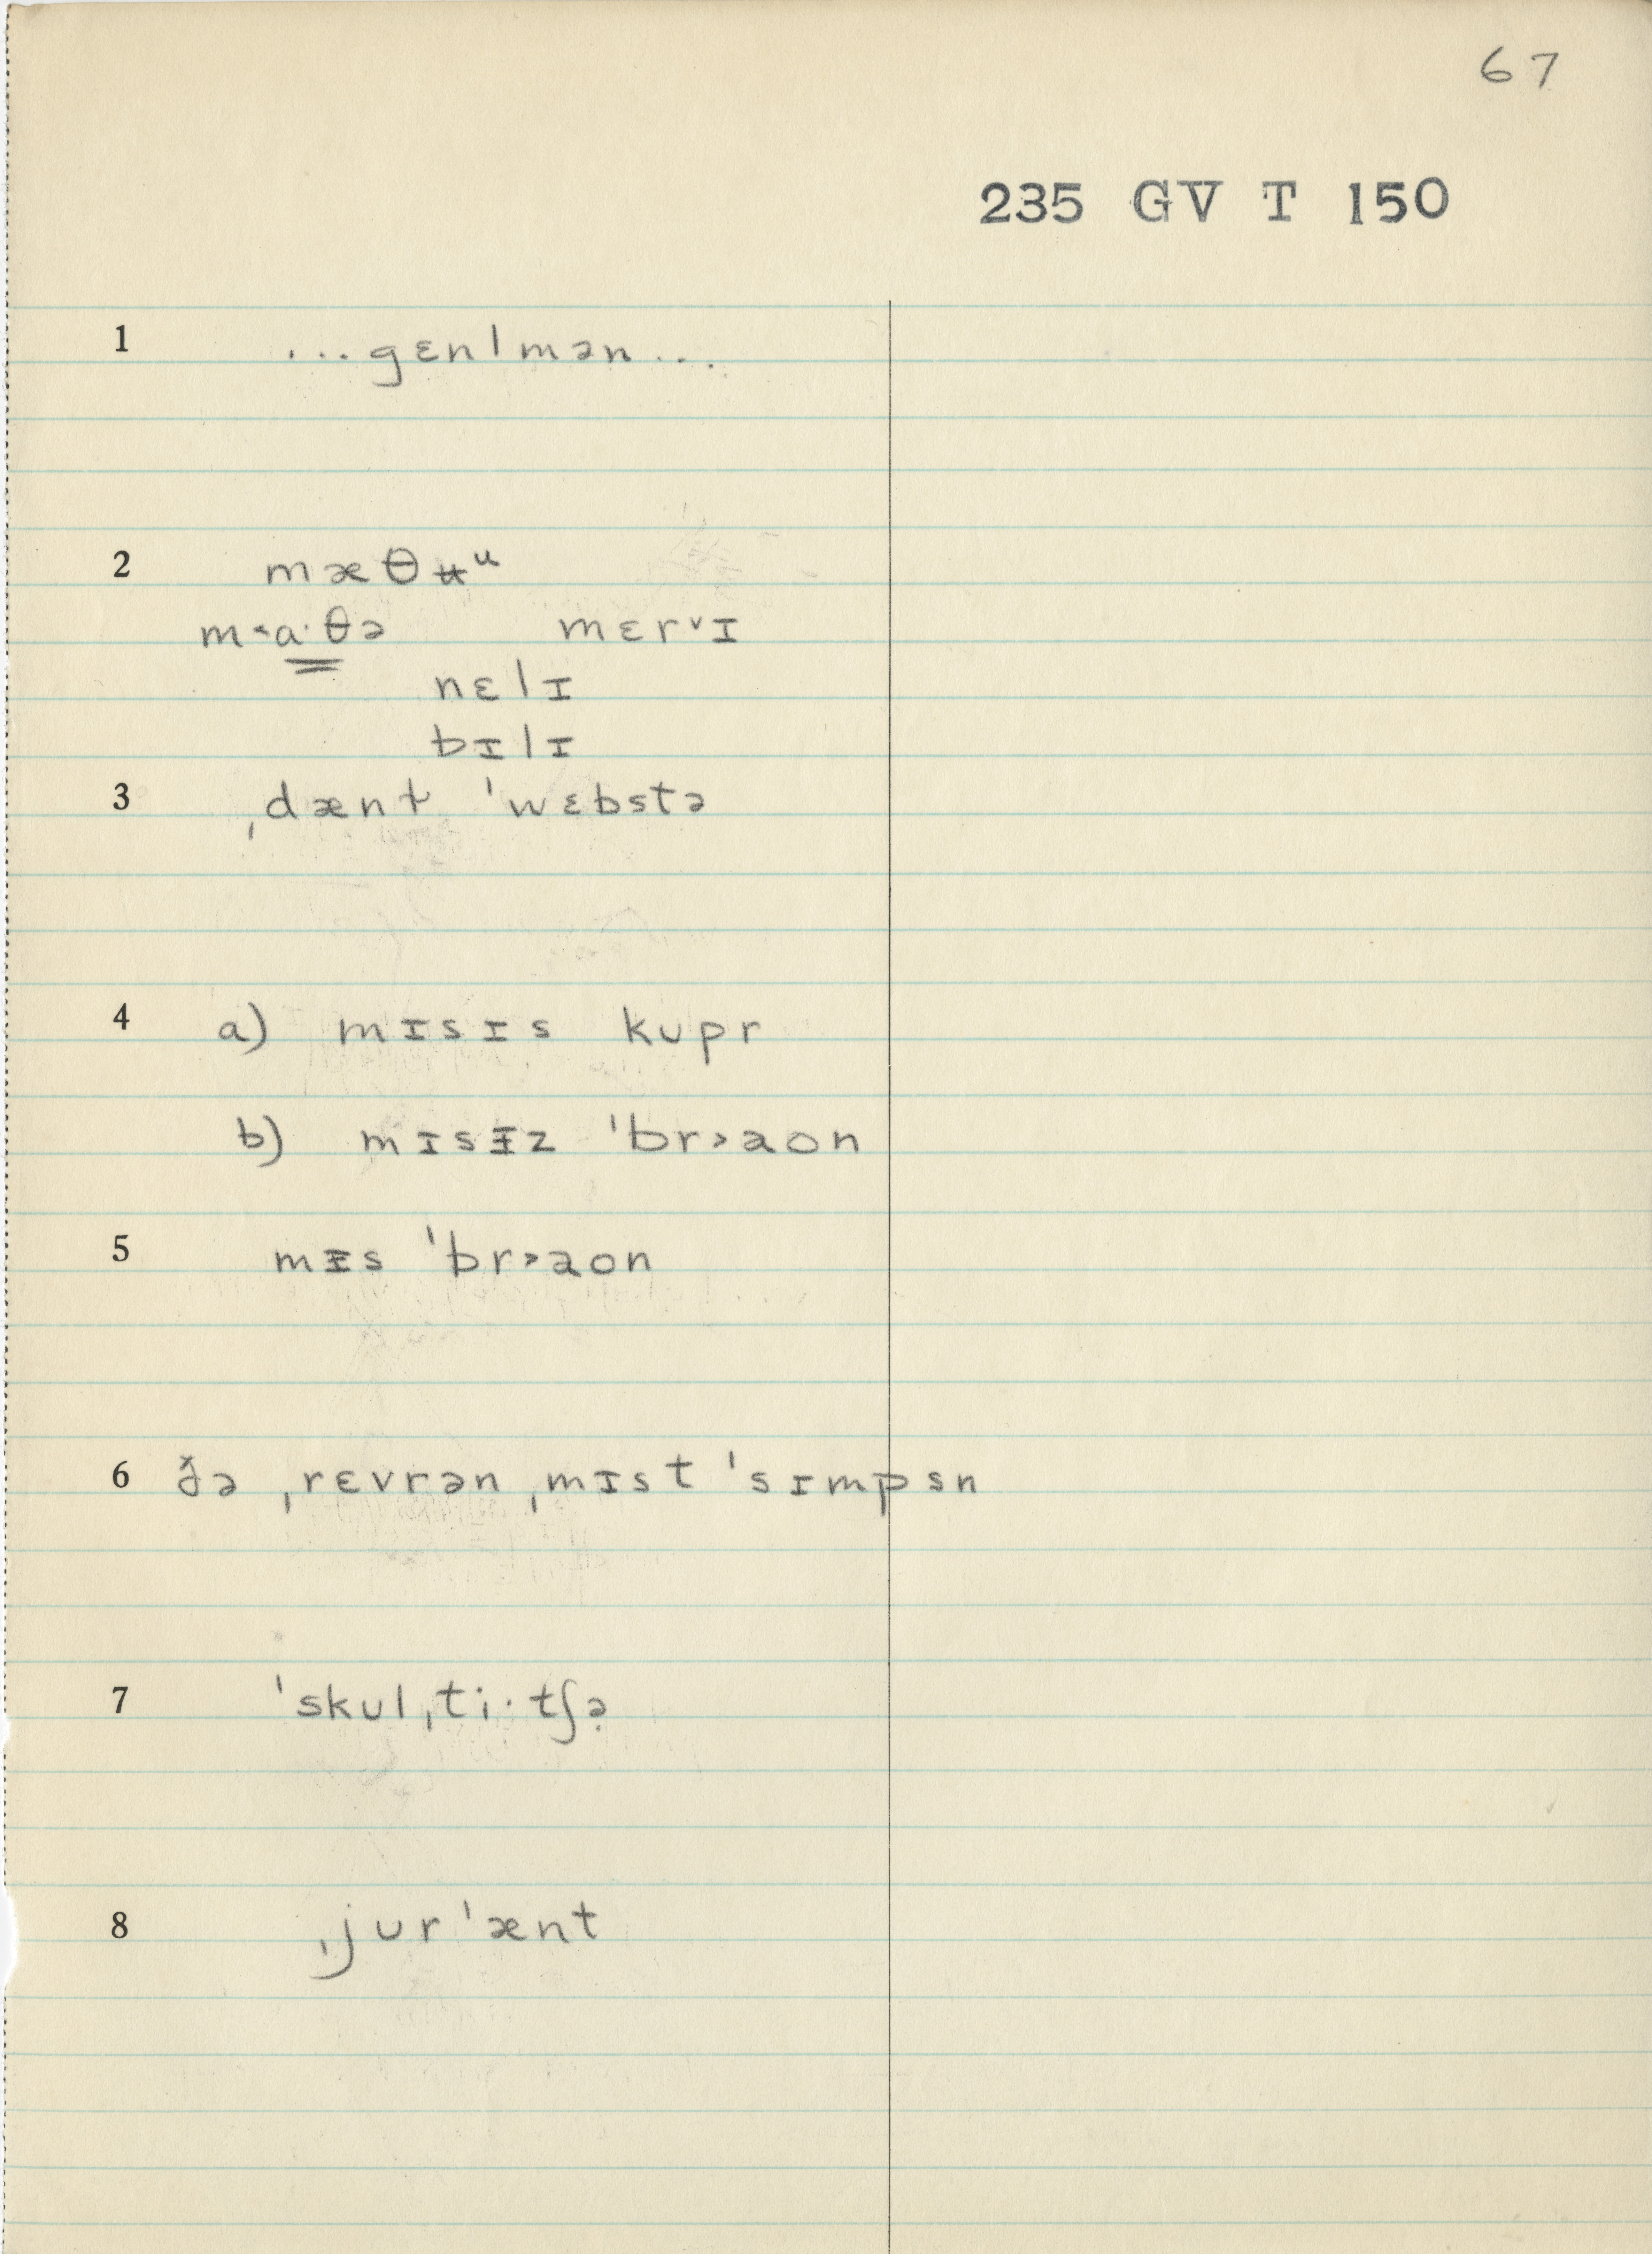 67
235 GV T 150
1 ...gɛnlmən...
2 mæθʉᵘ
m˂a·θə mɛr˅ɪ
nɛlɪ
bɪlɪ
3 ˌdænɫ ˈwɛbstə
4 a) mɪsɪs kupr
b) mɪsᵻz ˈbr˃aon
5 mᵻs ˈbr˃aon
6 ðə ˌrɛvrən ˌmɪst ˈsɪmpsn
7 ˈskulˌti·tʃə̣
8 ˌjurˈænt